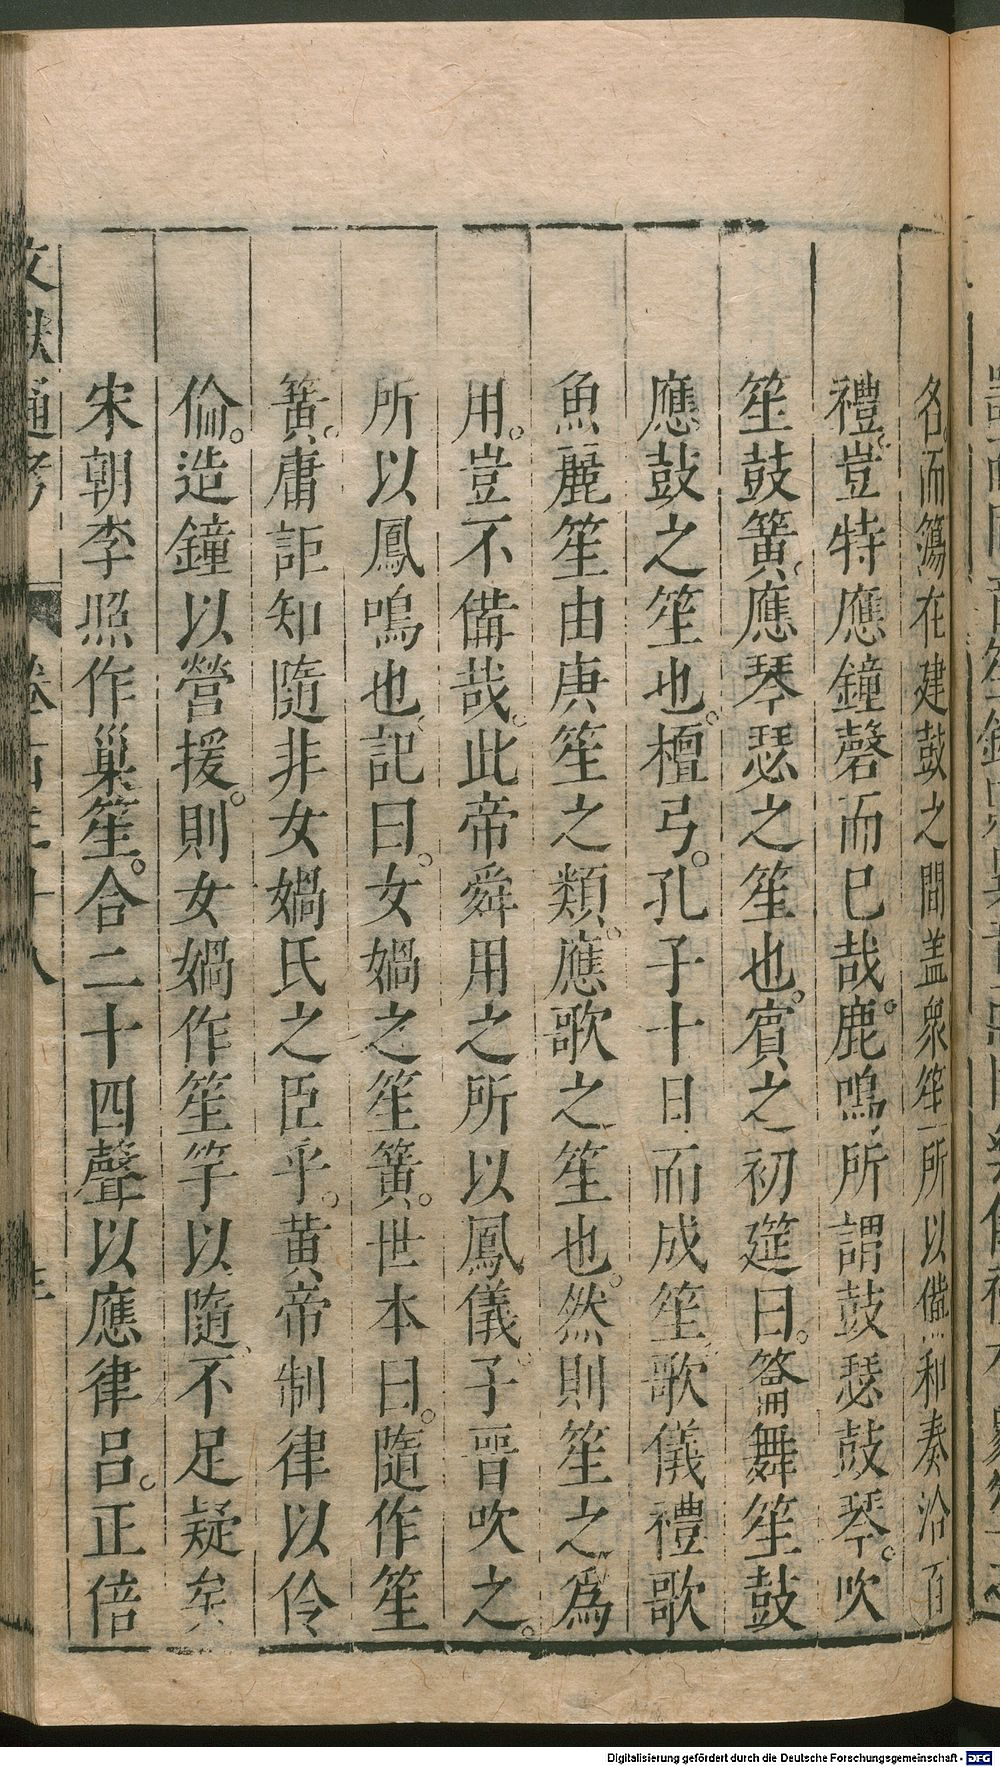 名。而簜在建鼓之間盖衆笙所以備和奏洽百
禮。豈特應鐘磬而已哉。鹿鳴所謂鼓瑟鼓琴。吹
笙鼓簧。應琴瑟之笙也。賓之初筵曰。籥舞笙鼓
應鼓之笙也。檀弓。孔子十日而成笙歌儀禮歌
魚麗笙由庚笙之類。應歌之笙也。然則笙之為
用。豈不備哉。此帝舜用之所以鳳儀。子晉吹之。
所以鳳鳴也。記曰。女媧之笙簧。世本曰。隨作笙
簧。庸詎知隨非女媧氏之臣乎。黃帝制律以伶
倫。造鐘以營援。則女媧作笙竽以隨。不足疑矣
宋朝李照作巢笙。合二十四聲以應律呂。正倍
文獻通考 卷百三十八
Digitalisierung gefördert durch die Deutsche Forschungsgemeinschaft - DFG